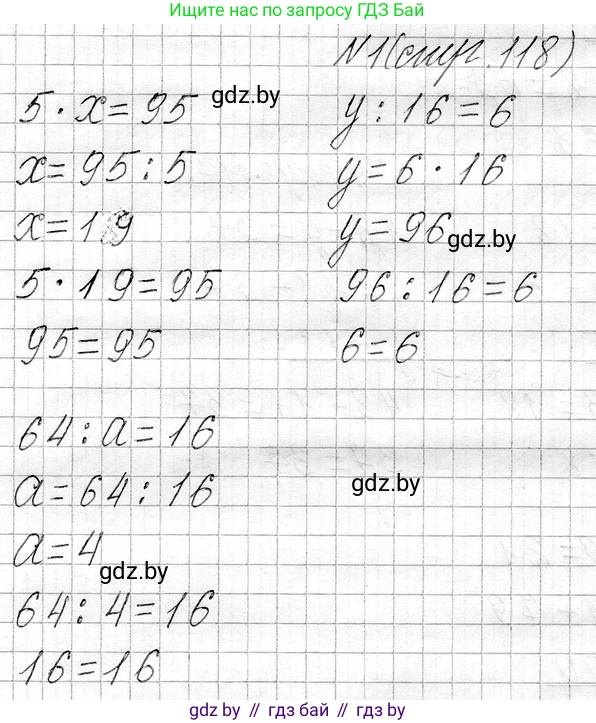 Ищите нас по запросу ГДЗ Бай
N1(стр. 118)
5 · x = 95
gdz.by
x = 95 : 5
x = 19
5 · 19 = 95
95 = 95
y : 16 = 6
y = 6 · 16
y = 96
gdz.by
96 : 16 = 6
6 = 6
64 : a = 16
a = 64 : 16
gdz.by
a = 4
gdz.by
64 : 4 = 16
16 = 16
gdz.by // гдз бай // gdz.by